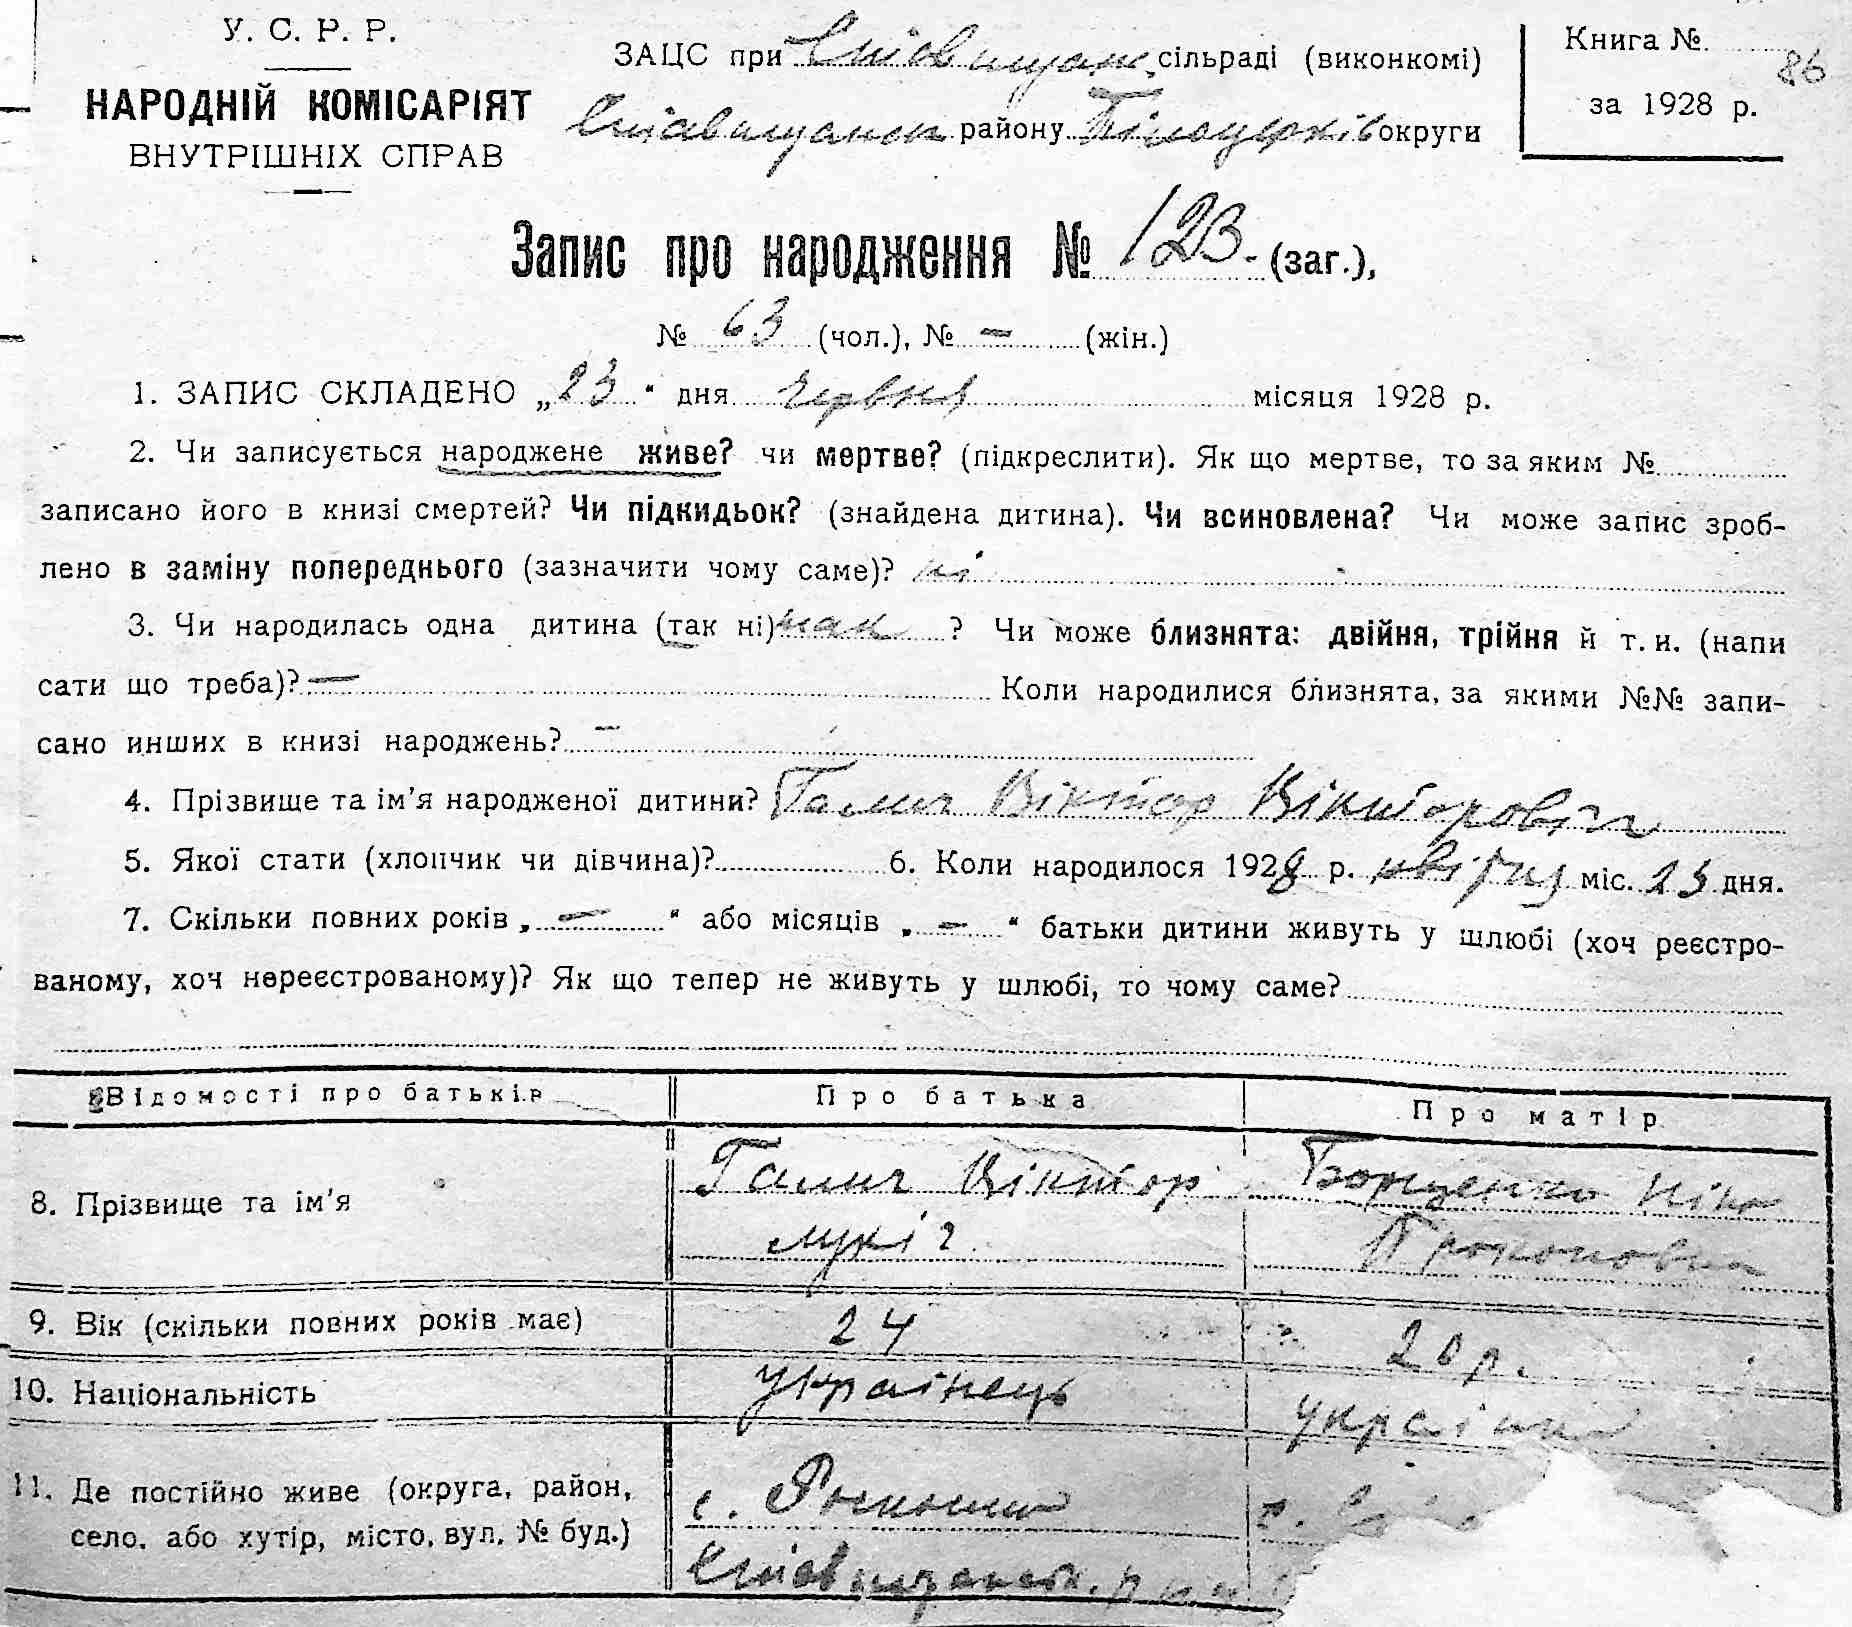 У. С. Р. Р.
НАРОДНІЙ КОМІСАРІЯТ
ВНУТРІШНІХ СПРАВ
ЗАЦС при Ставищан. сільраді (виконкомі)
Ставищанск району Білоцерків округи
Книга №.
86
за 1928 р.
Запис про народження № 123. (заг.),
№ 63 (чол.), № — (жін.)
1. ЗАПИС СКЛАДЕНО „23“ дня червня місяця 1928 р.
2. Чи записується народжене живе? чи мертве? (підкреслити). Як що мертве, то за яким №
записано його в книзі смертей? Чи підкидьок? (знайдена дитина). Чи всиновлена? Чи може запис зроб-
лено в заміну попереднього (зазначити чому саме)? ні
3. Чи народилась одна дитина (так ні) так ? Чи може близнята: двійня, трійня й т. и. (напи
сати що треба)? — Коли народилися близнята, за якими №№ запи-
сано инших в книзі народжень? —
4. Прізвище та ім’я народженої дитини? Галич Віктор Вікторовіч
5. Якої стати (хлопчик чи дівчина)? 6. Коли народилося 1928 р. квітня міс. 23 дня.
7. Скільки повних років „ — “ або місяців „ — “ батьки дитини живуть у шлюбі (хоч реєстро-
ваному, хоч нереєстрованому)? Як що тепер не живуть у шлюбі, то чому саме?
Відомості про батьків Про батька Про матір
8. Прізвище та ім’я Галич Віктор Борщенко Ніна
Лукіч Прокоповна
9. Вік (скільки повних років має) 24 20 р.
10. Національність українець українка
11. Де постійно живе (округа, район, с. Розкішна с.
село, або хутір, місто, вул. № буд.)
Ставищанськ. рай